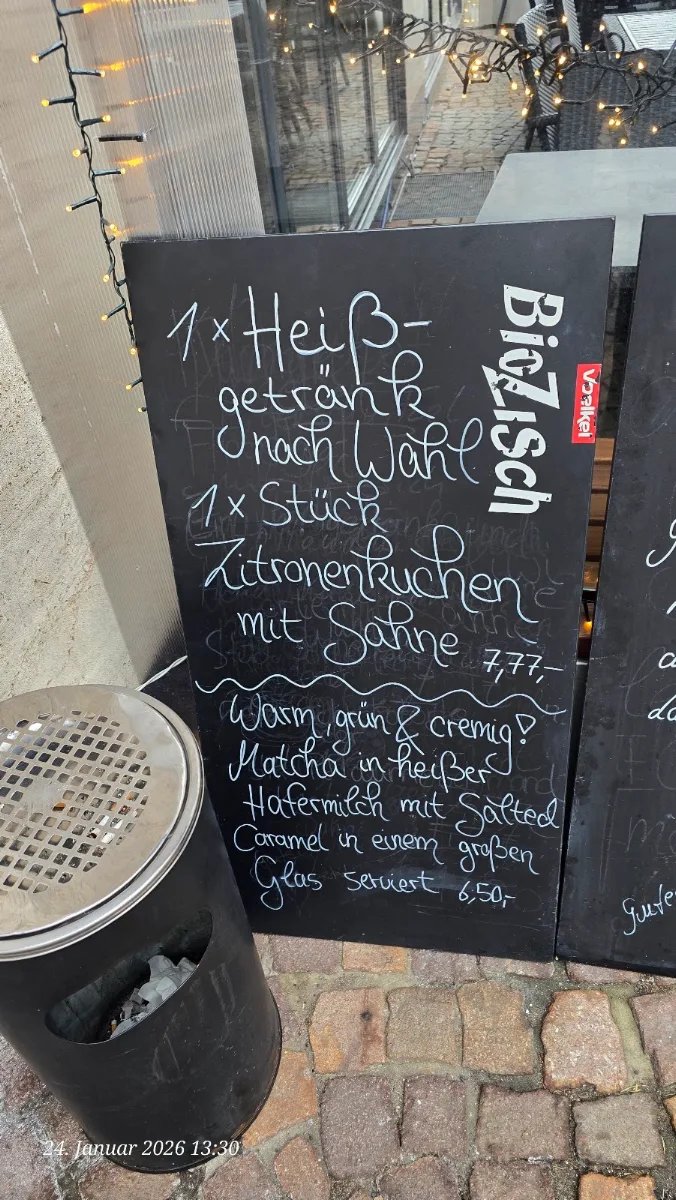 1x Heiß-
getränk
nach Wahl
1x Stück
Zitronenkuchen
mit Sahne 7,77,-
Warm, grün & cremig!
Matcha in heißer
Hafermilch mit Salted
Caramel in einem großen
Glas serviert 6,50,-
BioZisch
Voelkel
24. Januar 2026 13:30